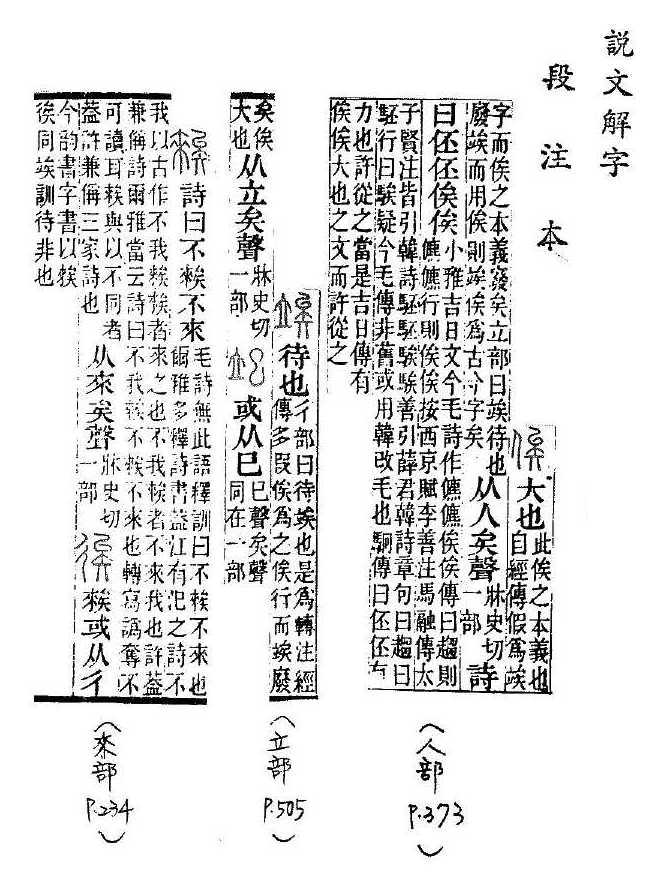 說文解字
段注本
大也
此俟之本義也
自經傳假爲竢
字而俟之本義廢矣立部曰竢待也
廢竢而用俟則竢俟爲古今字矣
从人矣聲
牀史切
一部
詩
曰伾伾俟俟
小雅吉日文今毛詩作儦儦俟俟傳曰趨則
儦儦行則俟俟按西京賦李善注馬融傳太
子賢注皆引韓詩駓駓騃騃善引薛君韓詩章句曰趨曰
駓行曰騃疑今毛傳非舊或用韓改毛也駉傳曰伾伾有
力也許從之當是吉日傳有
俟俟大也之文而許從之
(人部 P.373)
待也
彳部曰待竢也是爲轉注經
傳多叚俟爲之俟行而竢廢
矣俟
大也
从立矣聲
牀史切
一部
或从巳
巳聲矣聲
同在一部
(立部 P.505)
詩曰不𥏳不來
毛詩無此語釋訓曰不𥏳不來也
爾雅多釋詩書葢江有汜之詩不
我以古作不我𥏳𥏳者來之也不我𥏳者不來我也許葢
兼偁詩爾雅當云詩曰不我𥏳不𥏳不來也轉寫譌奪不
可讀耳𥏳與以不同者
葢許兼偁三家詩也
从來矣聲
牀史切
一部
𥏳或从彳
今韵書字書以𥏳
𢓡同竢訓待非也
(來部 P.234)